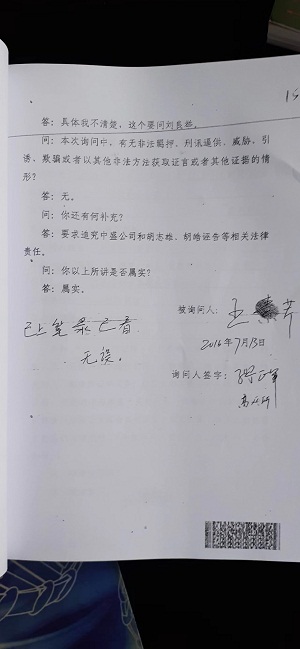 15
答：具体我不清楚，这个要问刘良然。
问：本次询问中，有无非法羁押、刑讯逼供、威胁、引
诱、欺骗或者以其他非法方法获取证言或者其他证据的情
形？
答：无。
问：你还有何补充？
答：要求追究中盛公司和胡志雄、胡皓诬告等相关法律
责任。
问：你以上所讲是否属实？
答：属实。
被询问人：王
已上笔录已看
2016年7月13日
无误。
询问人签字：